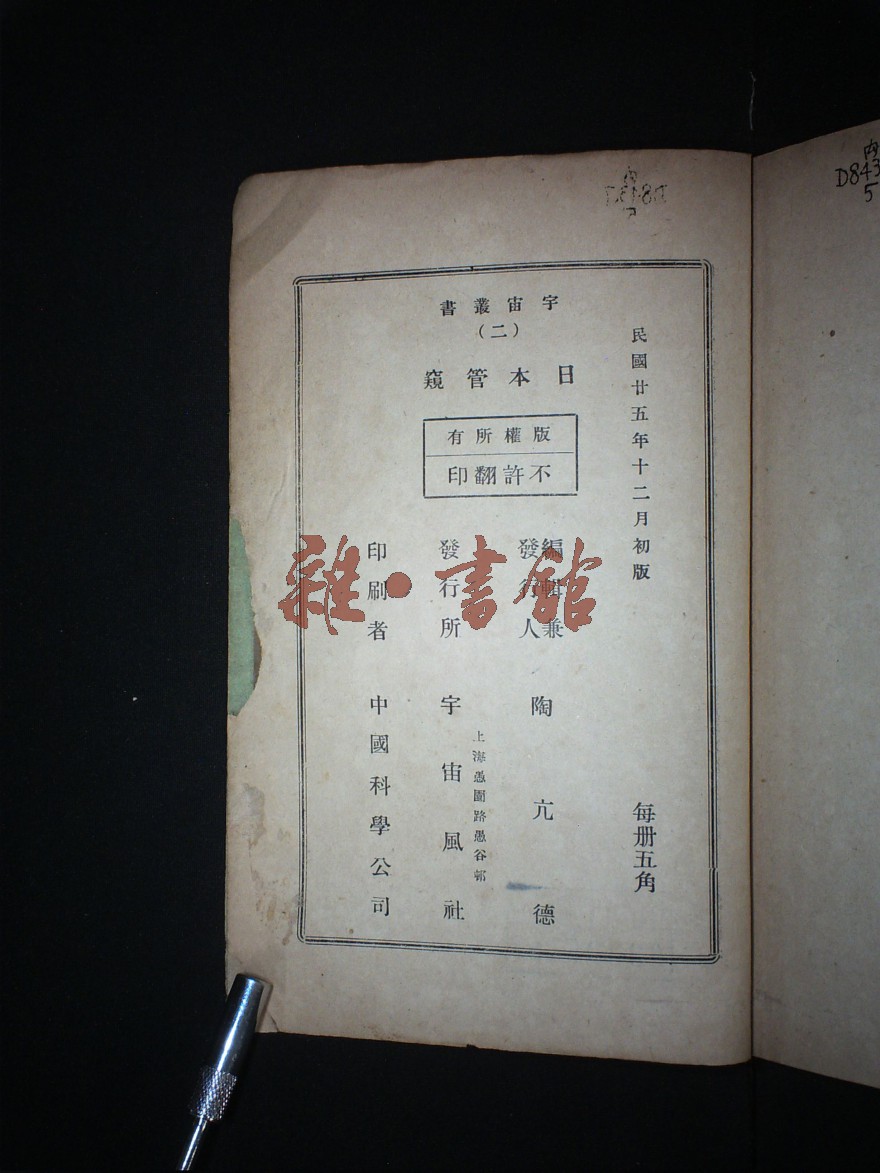 民國廿五年十二月初版
每册五角
宇宙叢書
(二)
日本管窺
版權所有
不許翻印
編輯兼
發行人
陶亢德
發行所
上海愚園路愚谷邨
宇宙風社
印刷者
中國科學公司
雜·書館
内
D843
5